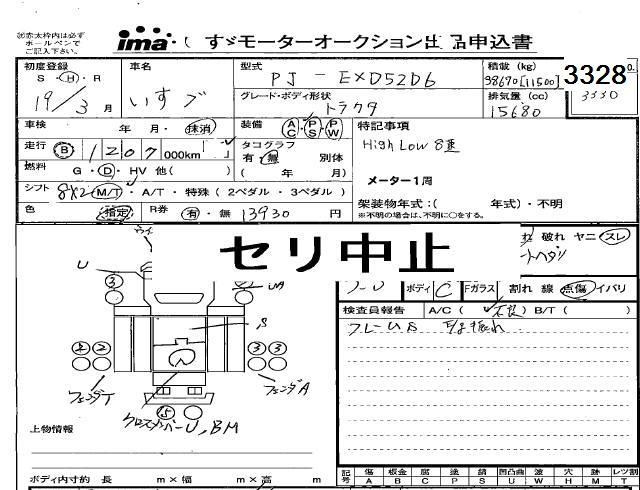 ㊟赤太枠内は必ず
ボールペンで
ご記入下さい。
ima いすゞモーターオークション出品申込書
初度登録 車名 型式 積載 (kg) 3328
S・H・R いすゞ PJ-EXD52D6 9800[11500] 3330
19/3月 グレード・ボディ形状 トラクタ 排気量 (cc) 15680
車検 年 月・抹消 装備 AC PS PW 特記事項
走行 B 1207,000km タコグラフ High Low 8速
有・無 別体
燃料 G・D・HV 他( ) ( 年 月) メーター1周
シフト 8X2 M/T・A/T・特殊(2ペダル・3ペダル) 架装物年式:( 年式)・不明
色 指定 R券 有・無 13930 円 ※不明の場合は、不明に○をする。
セリ中止
れ 破れ ヤニ スレ
ボディ C Fガラス 割れ 線 点傷 イバリ
検査員報告 A/C( ) B/T( )
U
3
S
2 3 3
フェンダA
5
クロスカバーU,BM
上物情報
ボディ内寸約 長 m×幅 m×高 m
記号 傷 板金 腐 塗 錆 凹凸曲 波 穴 跡 レツ割
A B C P S U W H M T